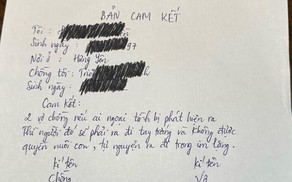 BẢN CAM KẾT
Tôi :
Sinh ngày : 97
Nơi ở : Hưng Yên
Chồng tôi :
Sinh ngày :
Cam kết:
2 vợ chồng nếu ai ngoại tình bị phát hiện ra
Thì người đó sẽ phải ra đi tay trắng và không được
quyền nuôi con, tự nguyện ra đi trong im lặng.
kí tên kí tên
Chồng Vợ